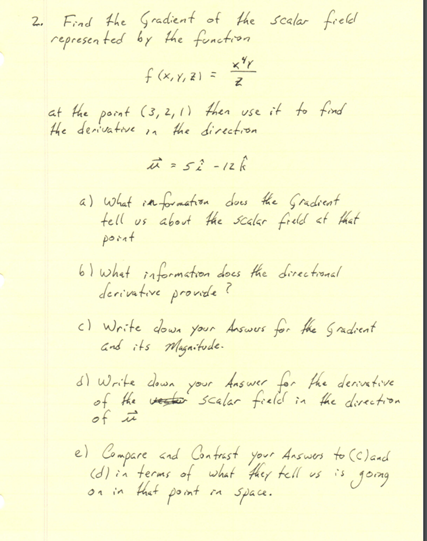 2. Find the Gradient of the scalar field
represented by the function
f(x,y,z) = x⁴y / z
at the point (3,2,1) then use it to find
the derivative in the direction
u⃗ = 5î - 12k̂
a) What information does the Gradient
tell us about the scalar field at that
point
b) What information does the directional
derivative provide?
c) Write down your Answers for the Gradient
and its Magnitude.
d) Write down your Answer for the derivative
of the scalar field in the direction
of u⃗
e) Compare and Contrast your Answers to (c) and
(d) in terms of what they tell us is going
on in that point in space.